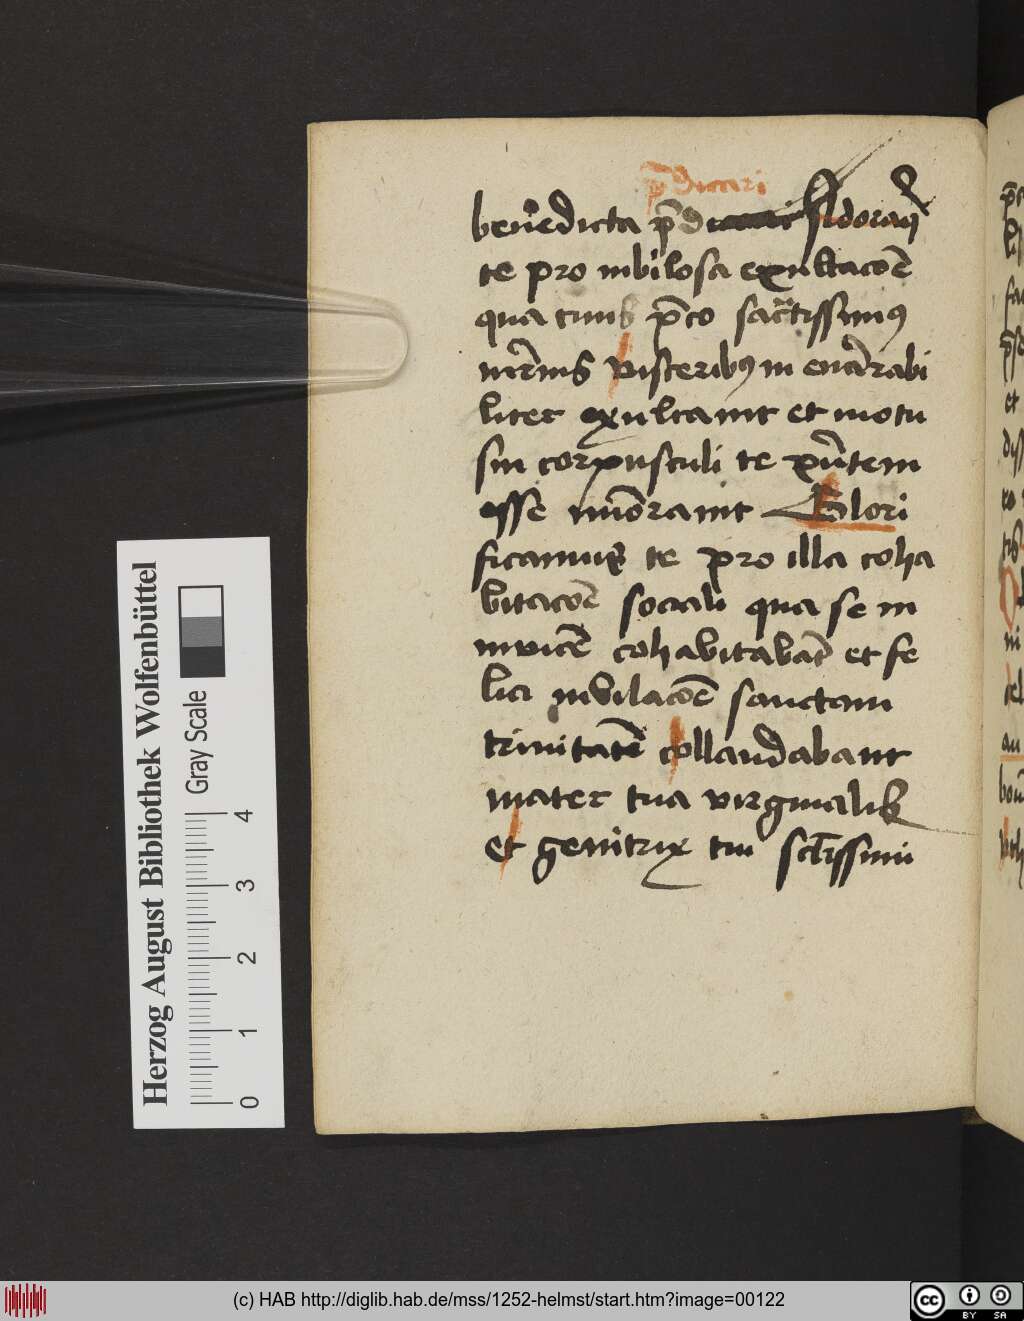 p̄dicari
benedicta p̄di Adoram9
te pro iubilosa exultacōe
qua tuus p̄co sāctissimus
mr̄nis visceribus in enarrabi
liter exultauit et motu
sui corpusculi te p̄ntem
esse mōrauit Glori
ficamus te pro illa coha
bitacōe sociali qua se in
inuicē cohabitabāt et fe
lici iubilacōe sanctam
trinitatē collaudabant
mater tua virginalis
et genitrix tui sctissimi
Herzog August Bibliothek Wolfenbüttel
Gray Scale
0 1 2 3 4
(c) HAB http://diglib.hab.de/mss/1252-helmst/start.htm?image=00122
cc BY SA